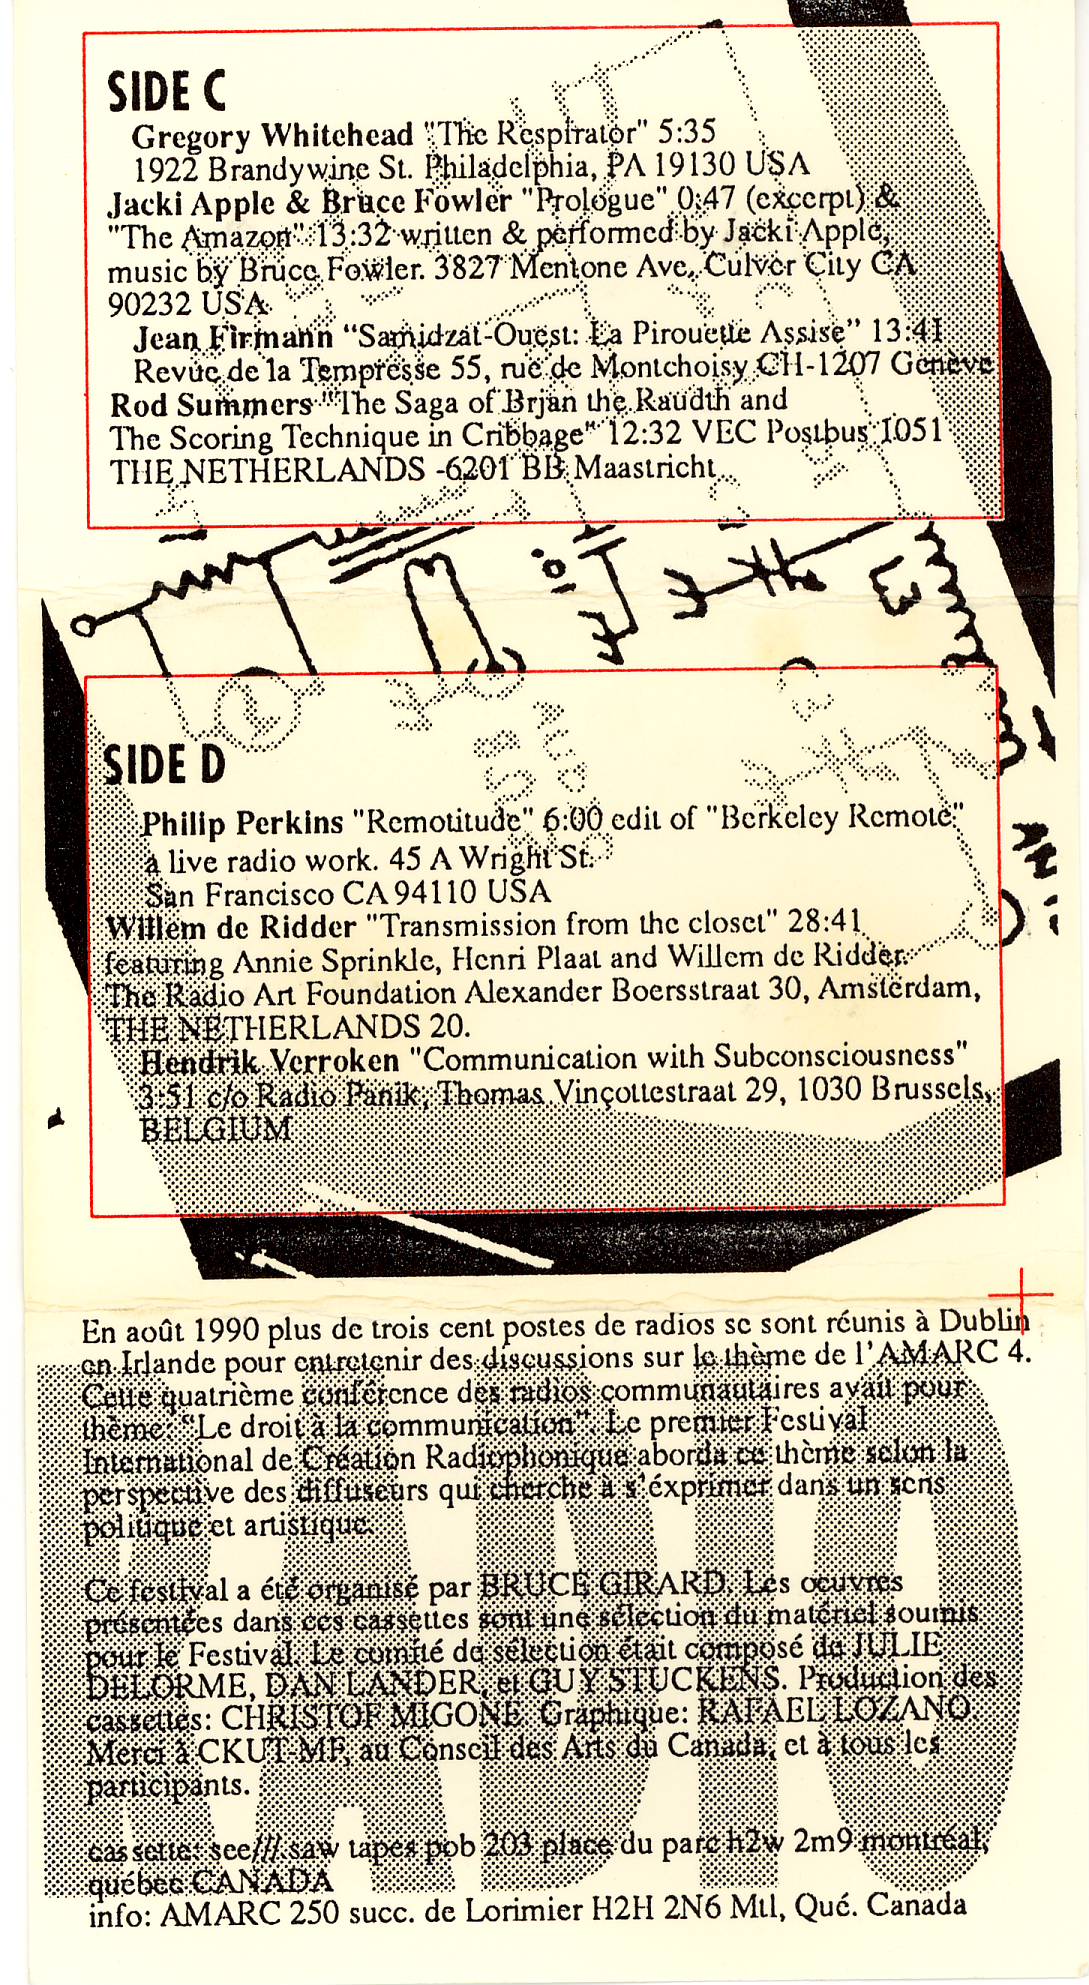 SIDE C
Gregory Whitehead "The Respirator" 5:35
1922 Brandywine St. Philadelphia, PA 19130 USA
Jacki Apple & Bruce Fowler "Prologue" 0:47 (excerpt) &
"The Amazon" 13:32 written & performed by Jacki Apple,
music by Bruce Fowler. 3827 Mentone Ave. Culver City CA
90232 USA
Jean Firmann “Samidzat-Ouest: La Pirouette Assise” 13:41
Revue de la Tempresse 55, rue de Montchoisy CH-1207 Geneve
Rod Summers "The Saga of Brjan the Raudth and
The Scoring Technique in Cribbage" 12:32 VEC Postbus 1051
THE NETHERLANDS -6201 BB Maastricht
SIDE D
Philip Perkins "Remotitude" 6:00 edit of "Berkeley Remote"
a live radio work. 45 A Wright St.
San Francisco CA 94110 USA
Willem de Ridder "Transmission from the closet" 28:41
featuring Annie Sprinkle, Henri Plaat and Willem de Ridder.
The Radio Art Foundation Alexander Boersstraat 30, Amsterdam,
THE NETHERLANDS 20.
Hendrik Verroken "Communication with Subconsciousness"
3:51 c/o Radio Panik, Thomas Vinçottestraat 29, 1030 Brussels,
BELGIUM
En août 1990 plus de trois cent postes de radios se sont réunis à Dublin
en Irlande pour entretenir des discussions sur le thème de l’AMARC 4.
Cette quatrième conférence des radios communautaires avait pour
thème: “Le droit à la communication”. Le premier Festival
International de Création Radiophonique aborda ce thème selon la
perspective des diffuseurs qui cherche à s’éxprimer dans un sens
politique et artistique.
Ce festival a été organisé par BRUCE GIRARD. Les oeuvres
présentées dans ces cassettes sont une sélection du matériel soumis
pour le Festival. Le comité de sélection était composé de JULIE
DELORME, DAN LANDER, et GUY STUCKENS. Production des
cassettes: CHRISTOF MIGONE Graphique: RAFAEL LOZANO
Merci à CKUT-MF, au Conseil des Arts du Canada, et à tous les
participants.
cassette: see///saw tapes pob 203 place du parc h2w 2m9 montréal,
québec CANADA
info: AMARC 250 succ. de Lorimier H2H 2N6 Mtl, Qué. Canada
RADIO